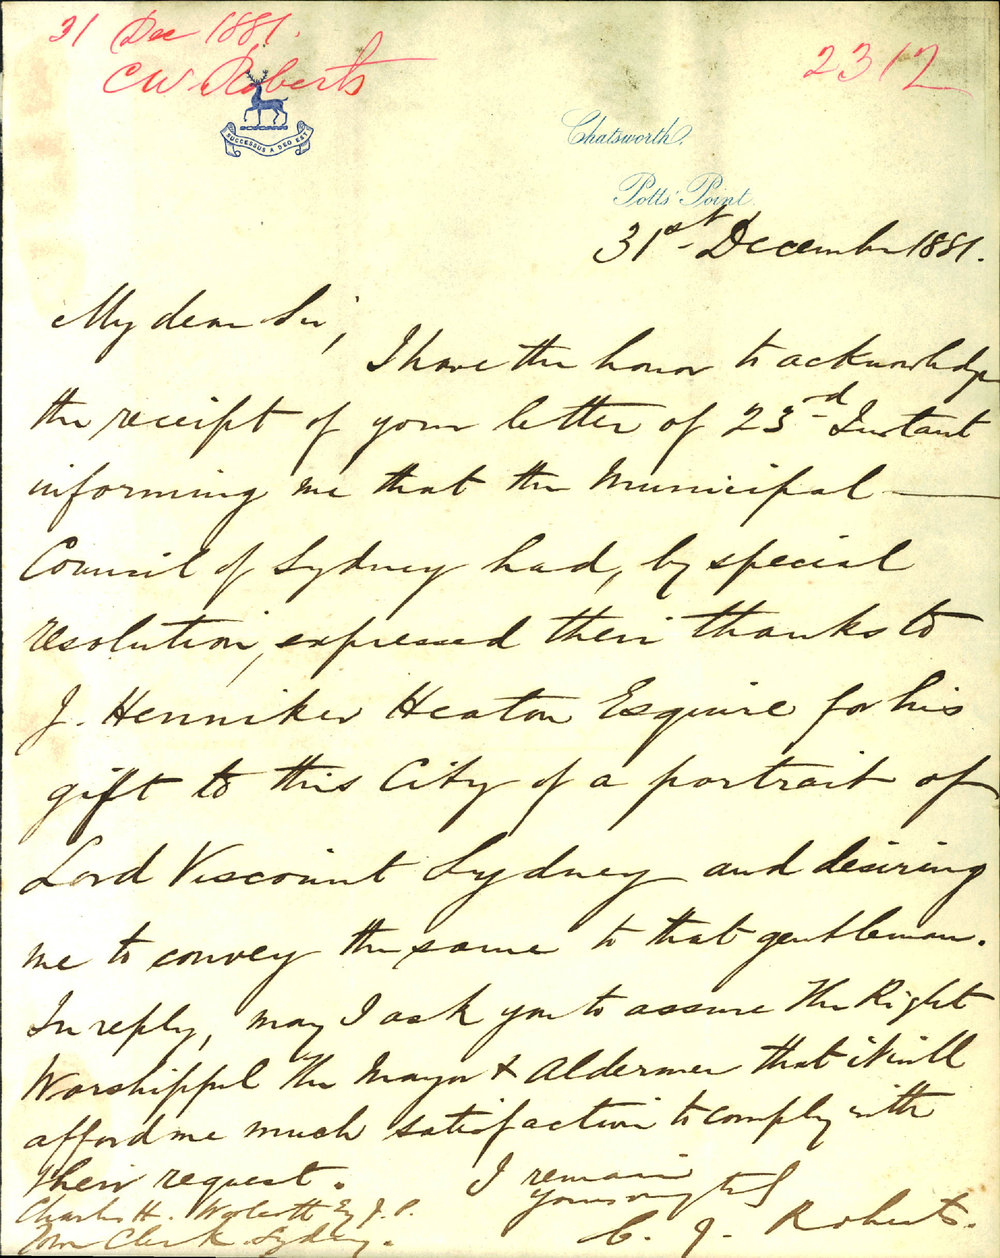 31 Dec 1881.
CW Roberts
2312
SUCCESSUS A DEO EST
Chatsworth.
Potts' Point.
31st December 1881.
My dear Sir,
I have the honor to acknowledge
the receipt of your letter of 23rd Instant
informing me that the Municipal
Council of Sydney had, by special
resolution, expressed their thanks to
J. Henniker Heaton Esquire for his
gift to this City of a portrait of
Lord Viscount Sydney and desiring
me to convey the same to that gentleman.
In reply, may I ask you to assure The Right
Worshipful the Mayor & Aldermen that it will
afford me much satisfaction to comply with
their request.
I remain
Yours very truly
C. J. Roberts.
Charles H. Woolcott Esq J.P.
Town Clerk. Sydney.